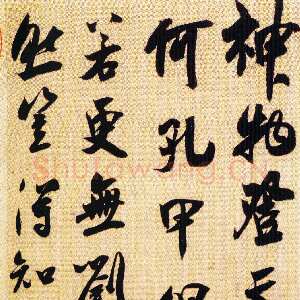 神物登天
何孔甲但
若更無劉
然豈得知
Shufawang.cn